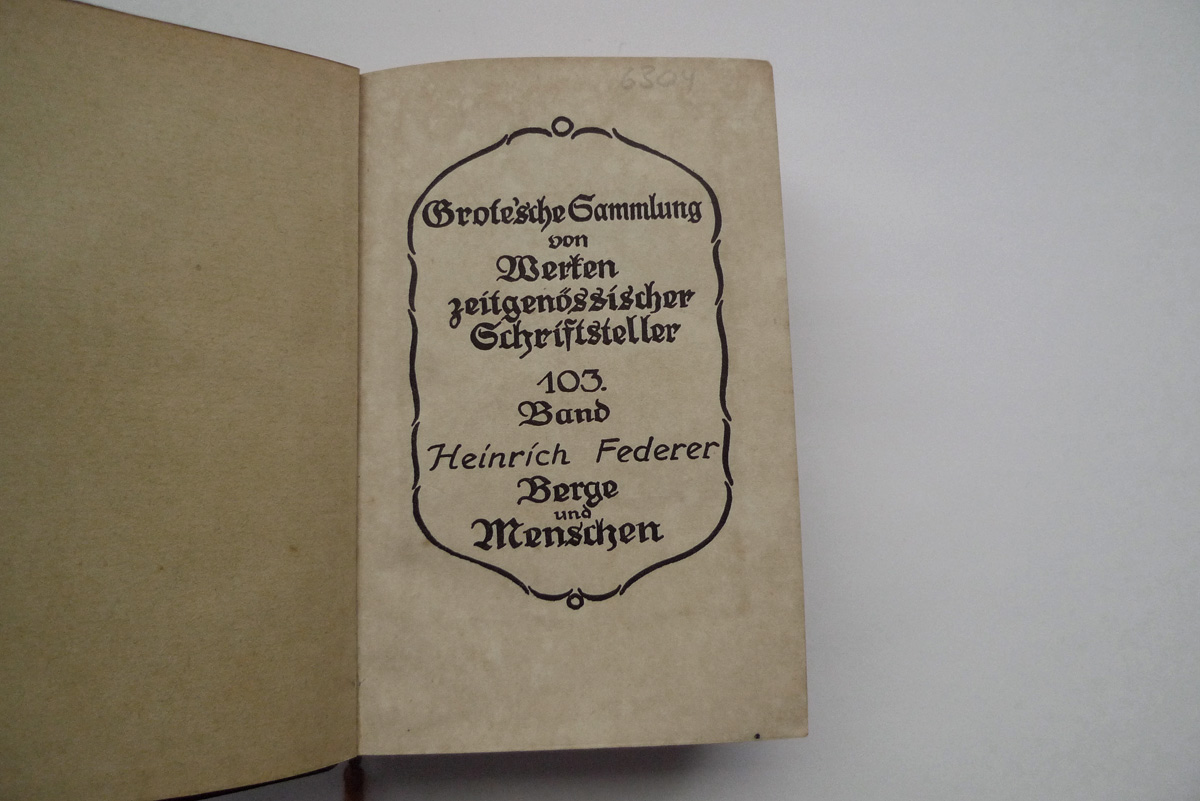 Grote'sche Sammlung
von
Werken
zeitgenössischer
Schriftsteller
103.
Band
Heinrich Federer
Berge
und
Menschen